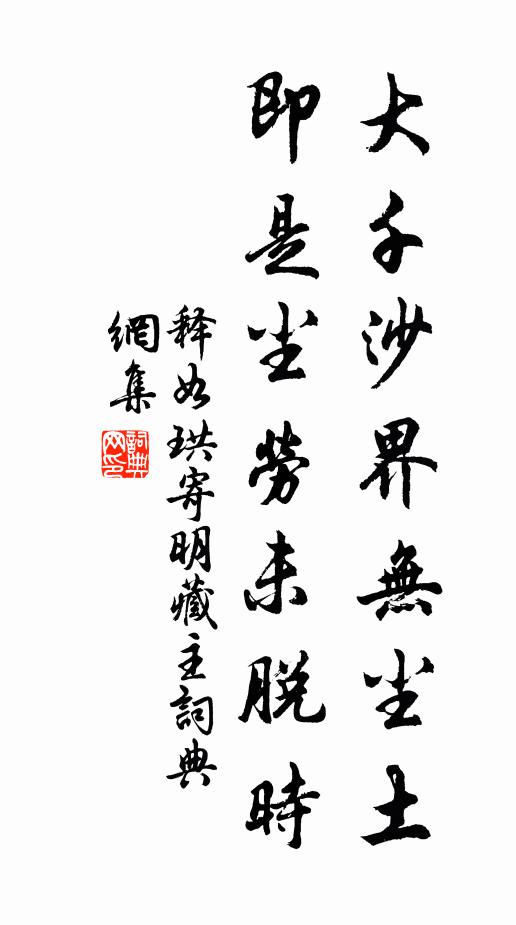 大千沙界無尘土
即是尘勞未脱時
释如珙寄明藏主詞典
網集
詞典
网印